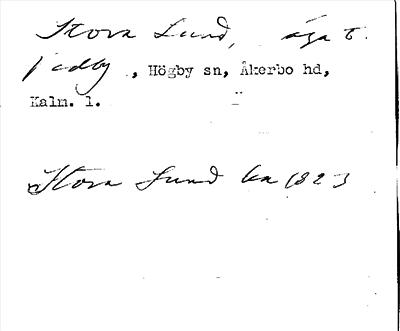 Stora Lund, äga t.
Jordby, Högby sn, Åkerbo hd,
Kalm. l.
Stora Lund ka 1823